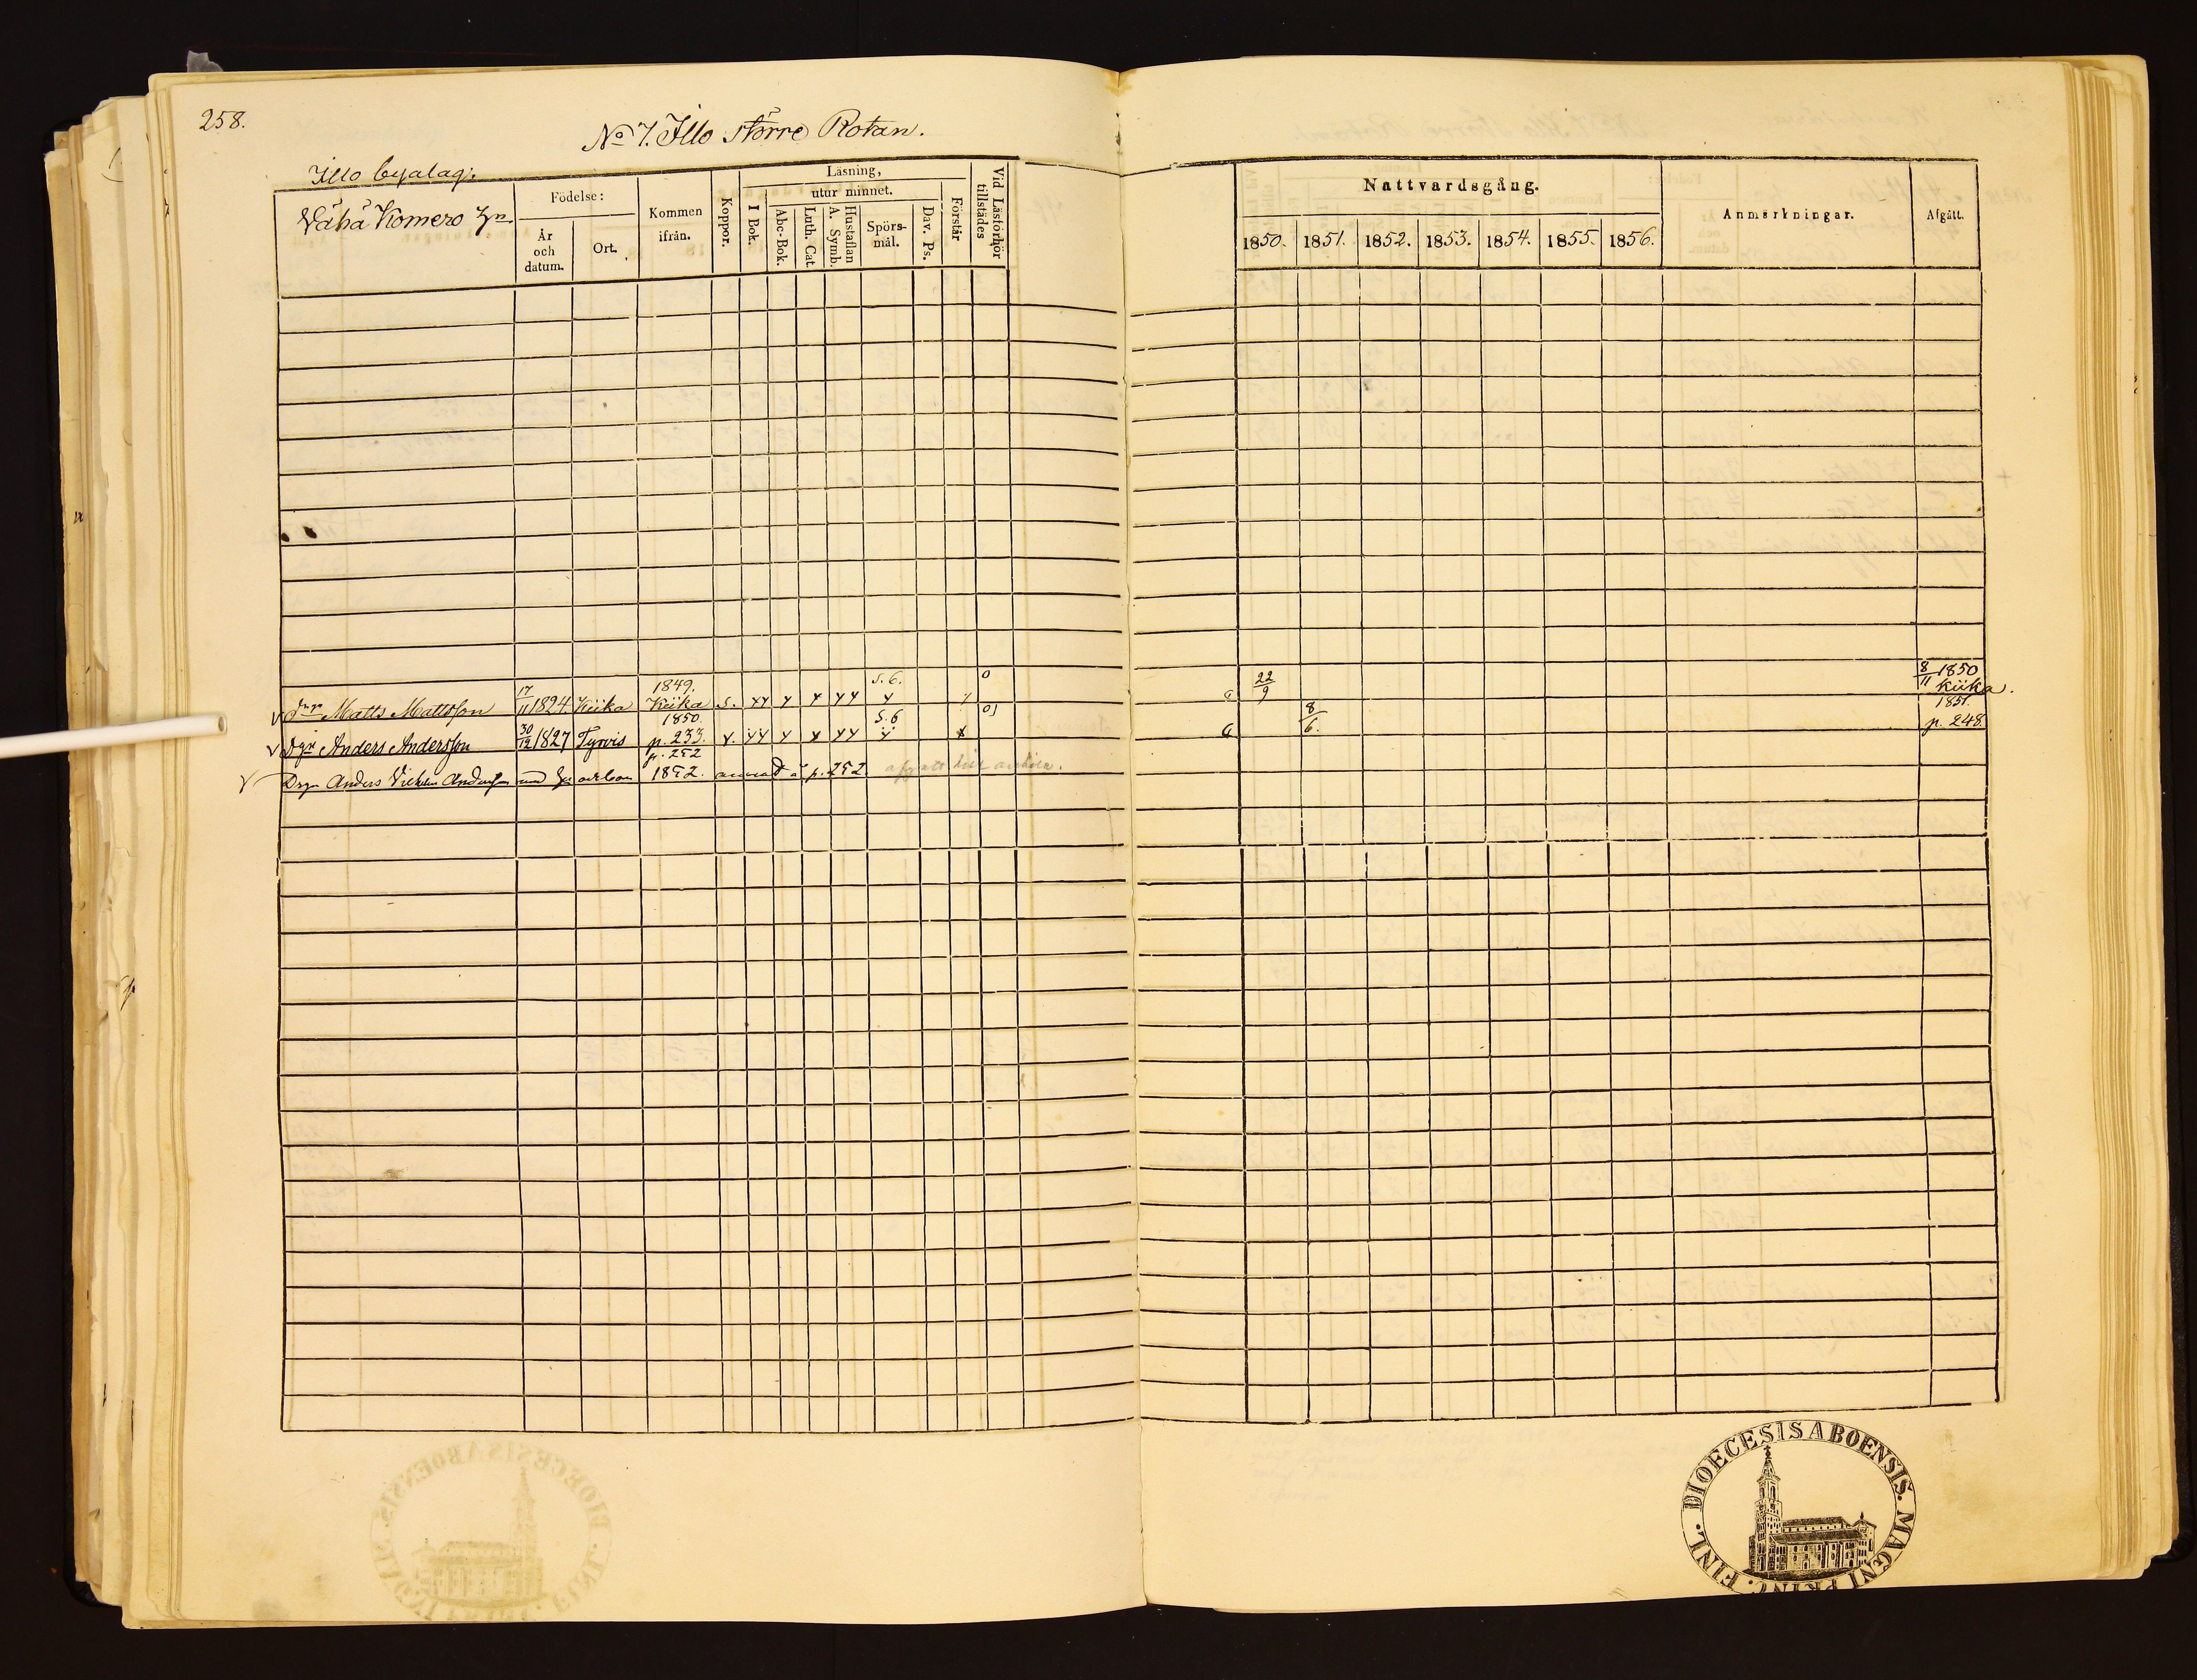 258.
No 7. Illo större Rotan.
Illo byalag:
Vähä Komero
Födelse:
År och datum.
Ort.
Kommen ifrån.
Koppor.
Läsning,
I Bok.
utur minnet.
Abc-Bok.
Luth. Cat.
Hustaflan A. Symb.
Spörs-mål.
Dav. Ps.
Förstår
Vid Läsförhör tillstädes
Nattvardsgång.
1850. 1851. 1852. 1853. 1854. 1855. 1856.
Anmärkningar.
Afgått.
Matts Mattsson 17/11 1824 Kiika 1849. Kiika s. s.6. 0 22/9 8/11 1850 Kiika.
Anders Andersson 30/12 1827 Tyrvis 1850. p. 233. s.6 8/6. 1851. p. 248.
Anders Vilhelm Andersson p. 252 1852. p. 252
DIOECESIS ABOENSIS. MAGNI PRINC. FINL.